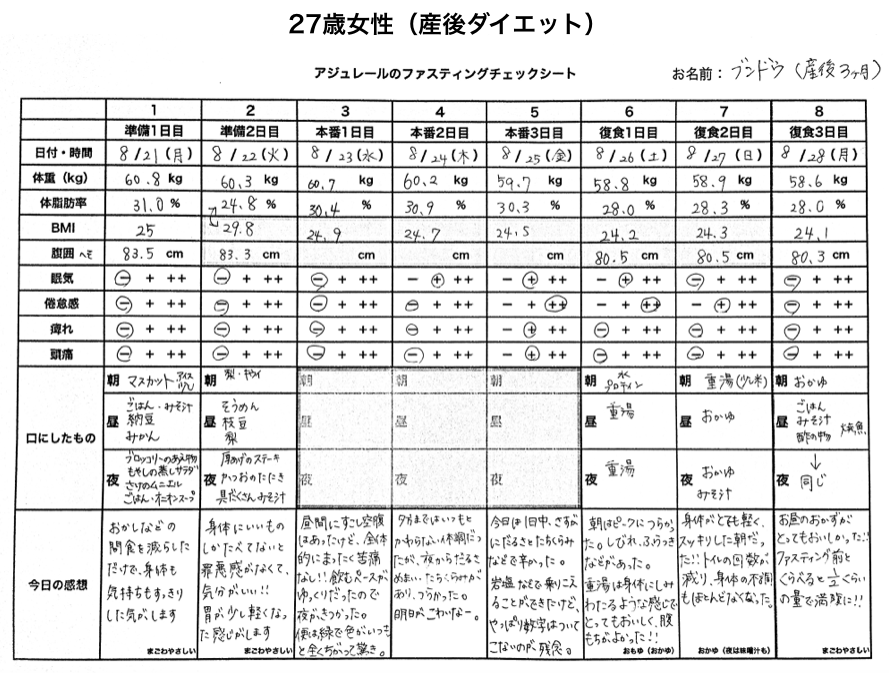 27歳女性（産後ダイエット）
アジュレールのファスティングチェックシート
お名前： ブンドウ（産後3ヶ月）
1 2 3 4 5 6 7 8
準備1日目 準備2日目 本番1日目 本番2日目 本番3日目 復食1日目 復食2日目 復食3日目
日付・時間 8/21(月) 8/22(火) 8/23(水) 8/24(木) 8/25(金) 8/26(土) 8/27(日) 8/28(月)
体重（kg） 60.8 kg 60.3 kg 60.7 kg 60.2 kg 59.7 kg 58.8 kg 58.9 kg 58.6 kg
体脂肪率 31.0 % 24.8 % 30.4 % 30.9 % 30.3 % 28.0 % 28.3 % 28.0 %
BMI 25 29.8 24.9 24.7 24.5 24.2 24.3 24.1
腹囲 へそ 83.5 cm 83.3 cm cm cm cm 80.5 cm 80.5 cm 80.3 cm
眠気 - + ++ - + ++ - + ++ - + ++ - + ++ - + ++ - + ++ - + ++
倦怠感 - + ++ - + ++ - + ++ - + ++ - + ++ - + ++ - + ++ - + ++
痺れ - + ++ - + ++ - + ++ - + ++ - + ++ - + ++ - + ++ - + ++
頭痛 - + ++ - + ++ - + ++ - + ++ - + ++ - + ++ - + ++ - + ++
口にしたもの
朝 マスカット アイス
昼 ごはん・みそ汁
納豆
みかん
夜 ブロッコリーのあえ物
もやしの蒸しサラダ
さけのムニエル
ごはん・オニオンスープ
朝 梨・キウイ
昼 そうめん
枝豆
梨
夜 厚あげのステーキ
かつおのたたき
具だくさんみそ汁
朝
昼
夜
朝
昼
夜
朝
昼
夜
朝 水
プロテイン
昼 重湯
夜 重湯
朝 重湯(少し米)
昼 おかゆ
夜 おかゆ
みそ汁
朝 おかゆ
昼 ごはん
みそ汁
酢の物 焼魚
↓
夜 同じ
今日の感想
おかしなどの
間食を減らした
だけで、身体も
気持ちもすっきり
した気がします
まごわやさしい
身体にいいもの
しかたべてないと
罪悪感がなくて、
気分がいい!!
胃が少し軽くなっ
た感じがします
まごわやさしい
昼間にすこし空腹
はあったけど、全体
的にまったく苦痛
なし!!飲むペースが
ゆっくりだったので
夜がきつかった。
便は緑で色がいつも
と全くちがって驚き。
夕方まではいつもと
かわらない体調だっ
たが、夜からだるさ
めまい、たちくらみが
あり、つらかった。
明日がこわいなー。
今日は1日中、さすが
にだるさとたちくらみ
などで辛かった。
岩塩などで乗りこえ
ることができたけど、
やっぱり数字はついて
こないのが、残念。
朝はピークにつらかっ
た。しびれ、ふらつき
などがあった。
重湯は身体にしみ
わたるような感じで
とってもおいしく、腹
もちがよかった!!
おもゆ（おかゆ）
身体がとても軽く、
スッキリした朝だっ
た!!トイレの回数が
減り、身体の不調
もほとんどなくなった。
おかゆ（夜は味噌汁も）
お昼のおかずが
とってもおいしかった!!
ファスティング前と
くらべると1/2くらい
の量で満腹に!!
まごわやさしい